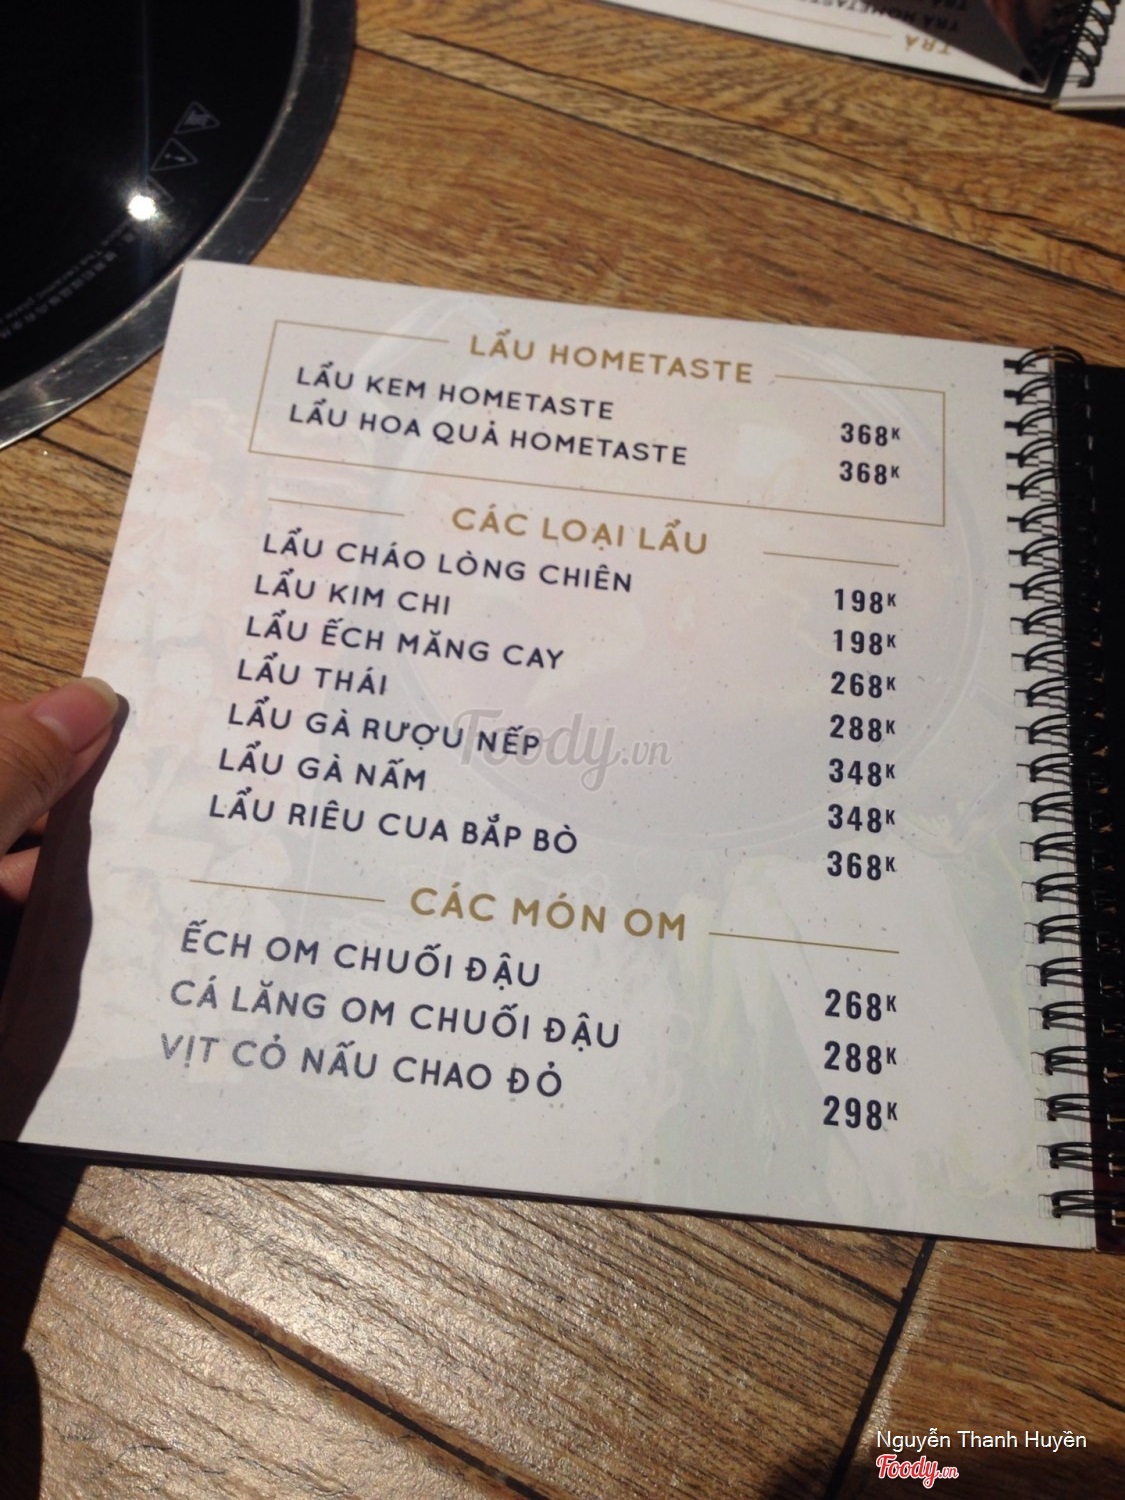 TRÀ
LẨU HOMETASTE
LẨU KEM HOMETASTE 368K
LẨU HOA QUẢ HOMETASTE 368K
CÁC LOẠI LẨU
LẨU CHÁO LÒNG CHIÊN 198K
LẨU KIM CHI 198K
LẨU ẾCH MĂNG CAY 268K
LẨU THÁI 288K
LẨU GÀ RƯỢU NẾP 348K
LẨU GÀ NẤM 348K
LẨU RIÊU CUA BẮP BÒ 368K
CÁC MÓN OM
ẾCH OM CHUỐI ĐẬU 268K
CÁ LĂNG OM CHUỐI ĐẬU 288K
VỊT CỎ NẤU CHAO ĐỎ 298K
Foody.vn
Nguyễn Thanh Huyền
Foody.vn